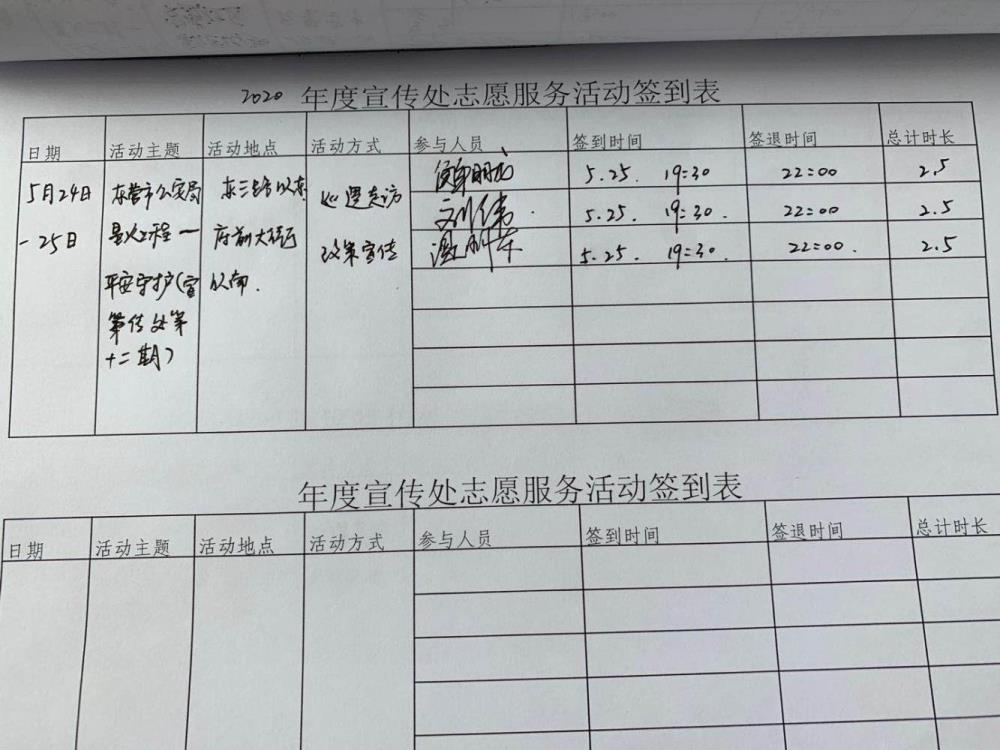 2020 年度宣传处志愿服务活动签到表
日期 活动主题 活动地点 活动方式 参与人员 签到时间 签退时间 总计时长
5月24日 东营市公安局 东三路以东 巡逻走访 5.25. 19:30 22:00 2.5
刘伟 5.25. 19:30. 22:00 2.5
-25日 星火工程一 府前大街 政策宣传 5.25. 19:30. 22:00. 2.5
平安守护(宣 以南.
传处第
十二期)
年度宣传处志愿服务活动签到表
日期 活动主题 活动地点 活动方式 参与人员 签到时间 签退时间 总计时长